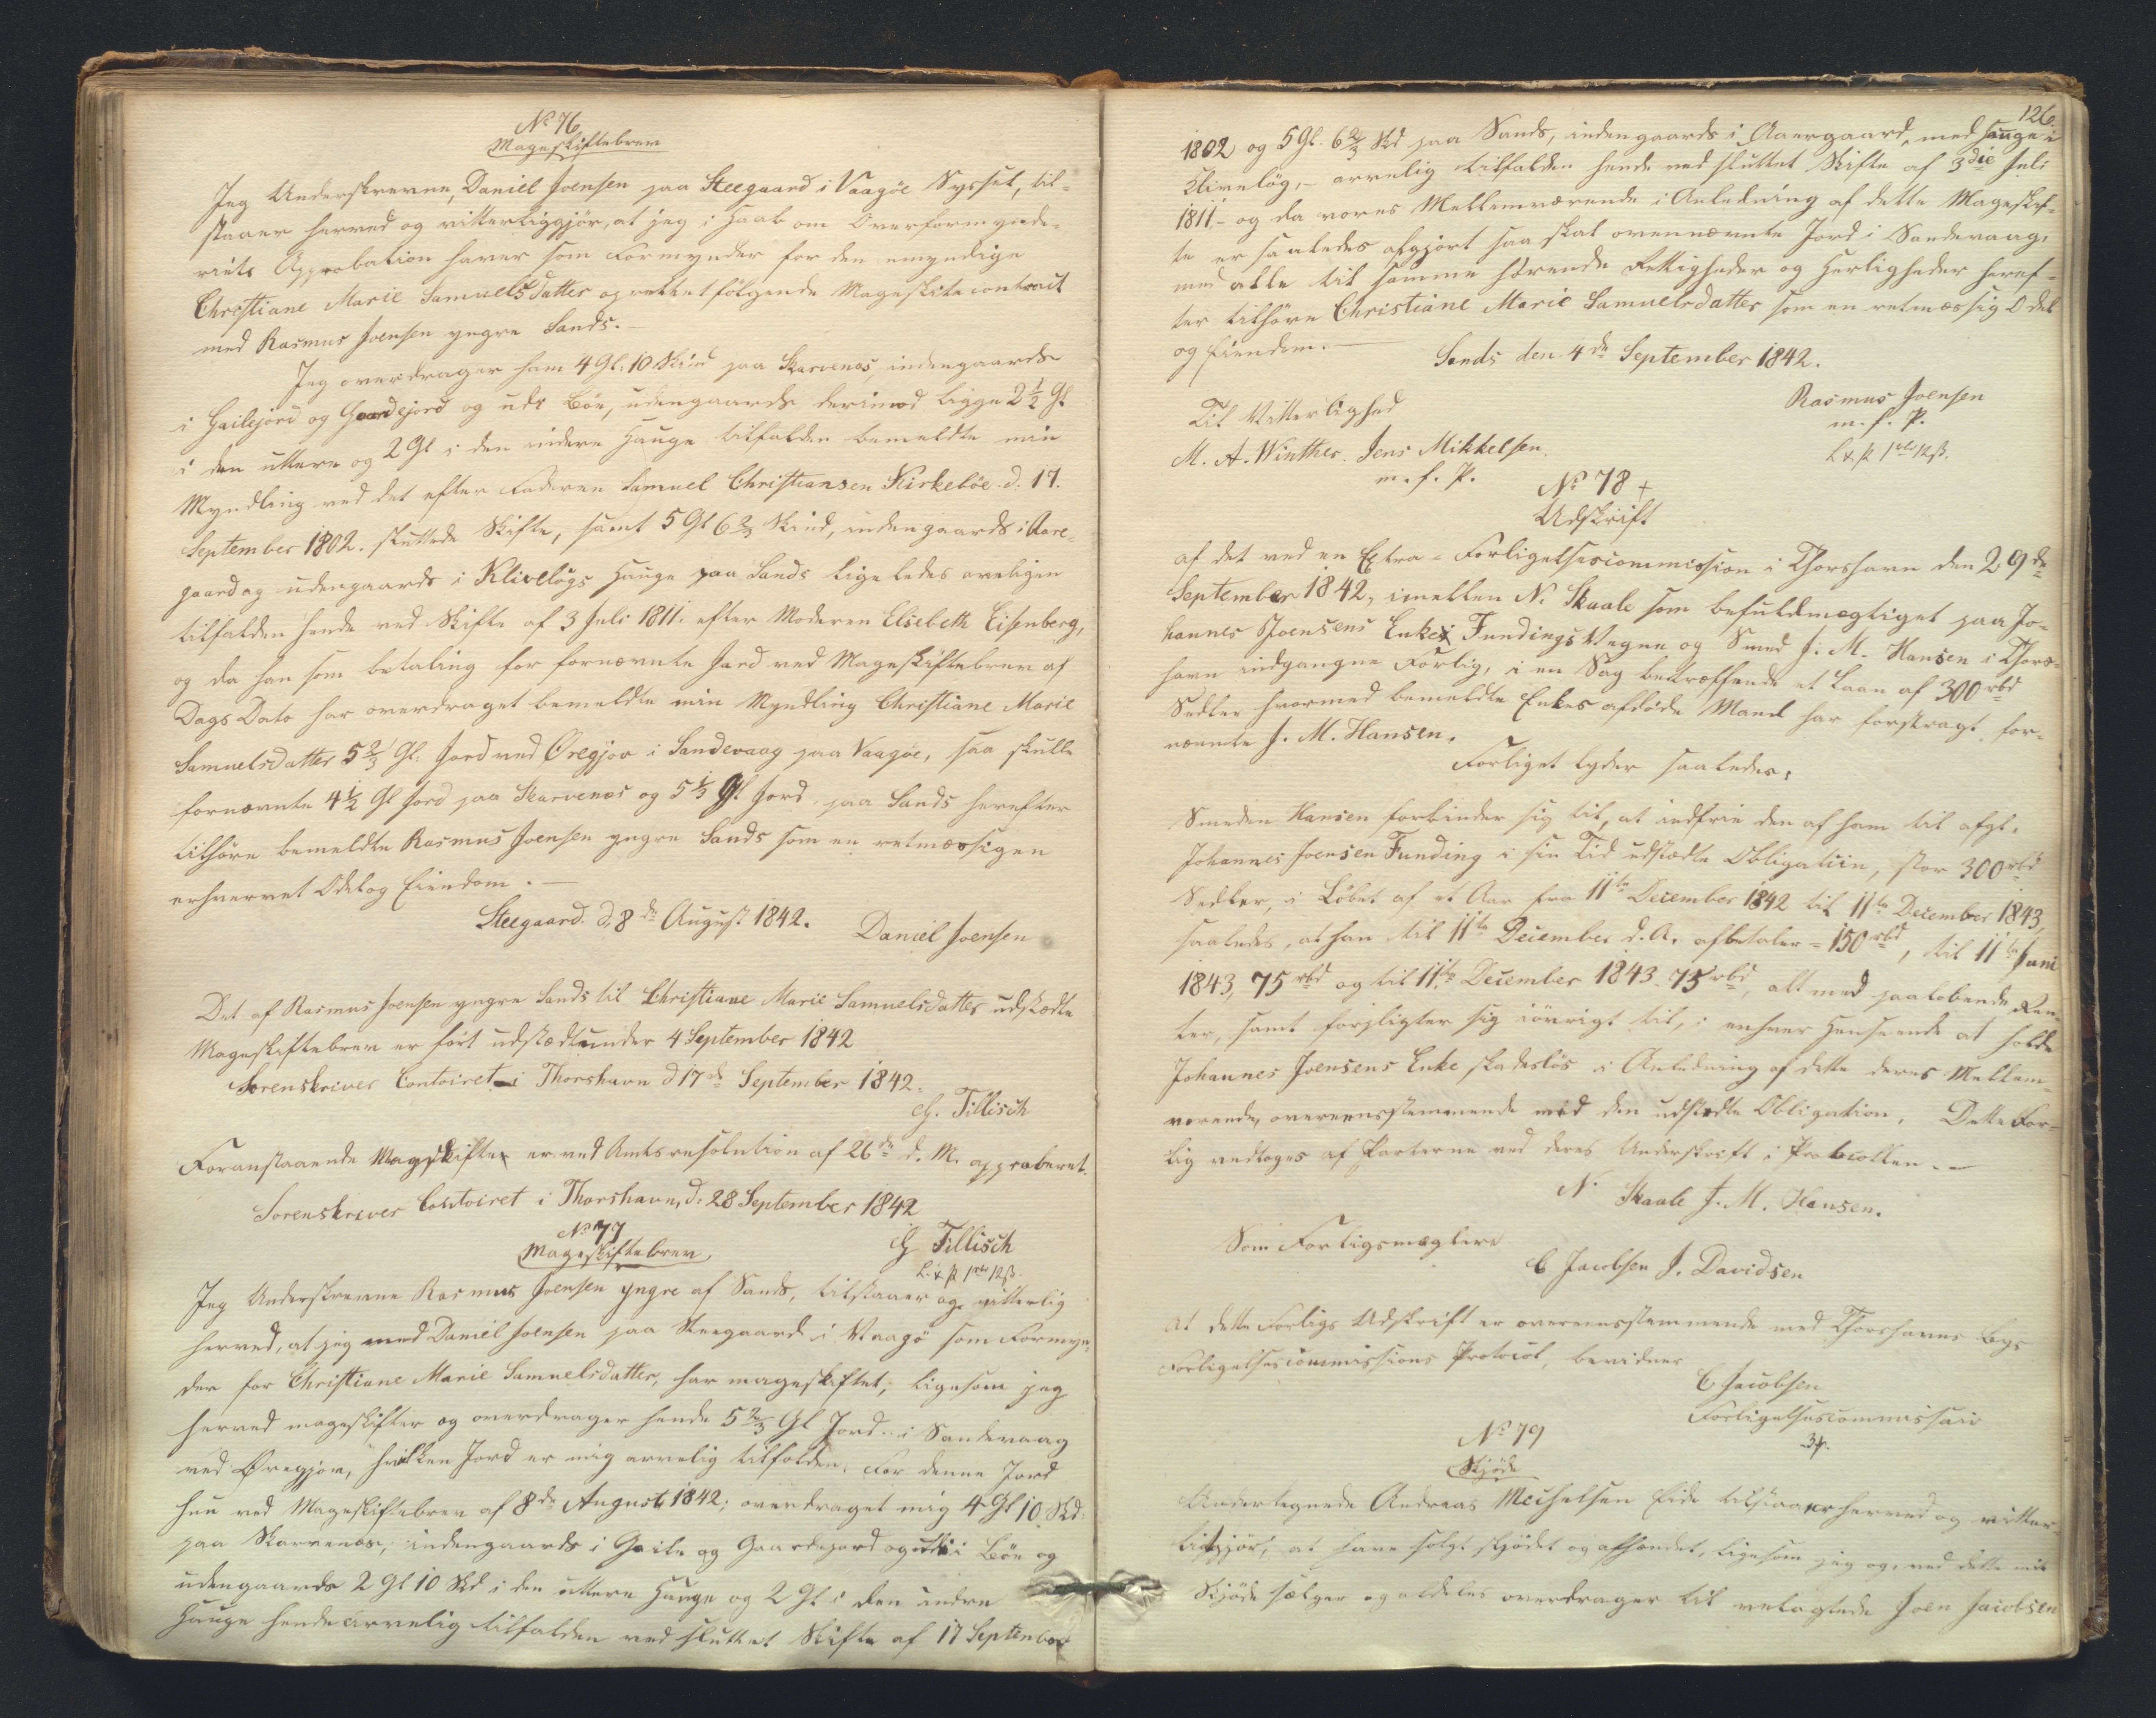 No 76
Mageskiftebrev
Jeg Underskrevne, Daniel Joensen paa Steegaard i Vaagöe Syssel, til-
staaer herved og vitterliggjör, at jeg i Haab om Overformynde-
riets Approbation haver som Formynder for den umyndige
Christiane Marie Samuels Datter oprettet fölgende Mageskiftecontract
med Rasmus Joensen yngre Sands.-
Jeg overdrager ham 4 Gl. 10 Skind paa Skarvenes, indengaards
i Heilejord og Gaardejord og udi Böe, udengaards derimod ligge 2½ Gl
i den uttere og 2 Gl i den indere Hauge tilfalden bemeldte min
Myndling ved det efter Faderen Samuel Christiansen Kirkeböe d: 17.
September 1802. sluttede Skifte, samt 5 Gl 6⅔ Skind, indengaards i Aare-
gaard og udengaards i Kliveløgs Hauge paa Sands ligeledes arveligen
tilfalden hende ved Skifte af 3 Juli 1811. efter Moderen Elsebeth Eisenberg,
og da han som betaling for fornævnte Jord ved Mageskiftebrev af
Dags Dato har overdraget bemeldte min Myndling Christiane Marie
Samuelsdatter 5⅔ Gl. Jord ved Øregjov i Sandevaag paa Vaagöe, saa skulle
fornævnte 4½ Gl Jord paa Skarvenes og 5⅓ Gl Jord paa Sands herefter
tilhöre bemeldte Rasmus Joensen yngre Sands som en retmæssigen
erhvervet Odel og Eiendom.-
Steegaard. d. 8de August 1842.
Daniel Joensen
Det af Rasmus Joensen yngre Sands til Christiane Marie Samuelsdatter udstædte
Mageskiftebrev er först udstædt under 4 September 1842
Sorenskriver Contoiret i Thorshavn d 17de September 1842.
G. Tillisch
Foranstaaende Mageskifte er ved Amtsresolution af 26de d. M. approberet.
Sorenskriver Contoiret i Thorshavn, d: 28 September 1842
G Tillisch
No 77
Mageskiftebrev,
Jeg Underskrevne Rasmus Joensen yngre af Sands, tilstaaer og vitterlig
herved, at jeg med Daniel Joensen paa Steegaard i Vaagö som Formyn-
der for Christiane Marie Samuelsdatter, har mageskiftet, ligesom jeg
herved mageskifter og overdrager hende 5⅔ Gl Jord i Sandevaag
ved Øregjov, hvilken Jord er mig arvelig tilfalden. For denne Jord
hun ved Mageskiftebrev af 8de August 1842, overdraget mig 4 Gl 10 Skd
paa Skarvenes, indengaards i Heile og Gaardejord og udi Böe og
udengaards 2 Gl 10 Skd i den uttere Hauge og 2 Gl i den indre
Hauge hende arvelig tilfalden ved sluttet Skifte af 17 September
126.
1802 og 5 Gl. 6⅔ Skd paa Sands, indengaards i Aaregaard, med Hauge i
Kliveløg,- arvelig tilfalden hende ved sluttet Skifte af 3die Juli
1811.- og da vores Mellemværende i Anledning af dette Mageskif-
te er saaledes afgjort saa skal ovennævnte Jord i Sandevaag,
med alle til samme hörende Rettigheder og Herligheder heref-
ter tilhöre Christiane Marie Samuelsdatter som en retmæssig Odel
og Eiendom.-
Sands den 4de September 1842.
Rasmus Joensen
m. f. P.
Til Vitterlighed
M. A. Winther. Jens Mikkelsen.
m. f. P.
No 78 +
Udskrift
af det ved en Extra-Forligelsescommission i Thorshavn den 29de
September 1842, imellem N. Skaale som befuldmægtiget paa Jo-
hannes Joensens Enke Fundings Vegne og Smed J. M. Hansen i Thors-
havn indgangne Forlig, i en Sag betræffende et Laan af 300 rbd
Sedler hvormed bemeldte Enkes afdöde Mand har forstragt for-
nævnte J. M. Hansen.
Forliget lyder saaledes:
Smeden Hansen forbinder sig til, at indfrie den af ham til afgl.
Johannes Joensen Funding i sin Tid udstædte Obligation, stor 300 rbd
Sedler, i Löbet af et Aar fra 11te December 1842 til 11te December 1843,
saaledes, at han til 11te December d. A. afbetaler 150 rbd, til 11te Juni
1843, 75 rbd og til 11te December 1843 75 rbd, alt med paalöbende Ren-
ter, samt forpligter sig iövrigt til, i enhver Henseende at holde
Johannes Joensens Enke skadeslös i Anledning af dette deres Mellem-
værende, overeensstemmende med den udstædte Obligation. Dette For-
lig vedtoges af Parterne ved deres Underskrift i Protocollen.-
N. Skaale J. M. Hansen.
Som Forligsmæglere
C Jacobsen J. Davidsen
At dette Forligs Udskrift er overeensstemmende med Thorshavns Byes
Forligelsescommissions Protocol, bevidner
C Jacobsen
Forligelsescommissair
No 79
Skjöde
Undertegnede Andreas Michelsen Eide tilstaaer herved og vitter-
liggjör, at have solgt skjödet og afhændet, ligesom jeg og, ved dette mit
Skjöde sælger og aldeles overdrager til velagtede Joen Jacobsen